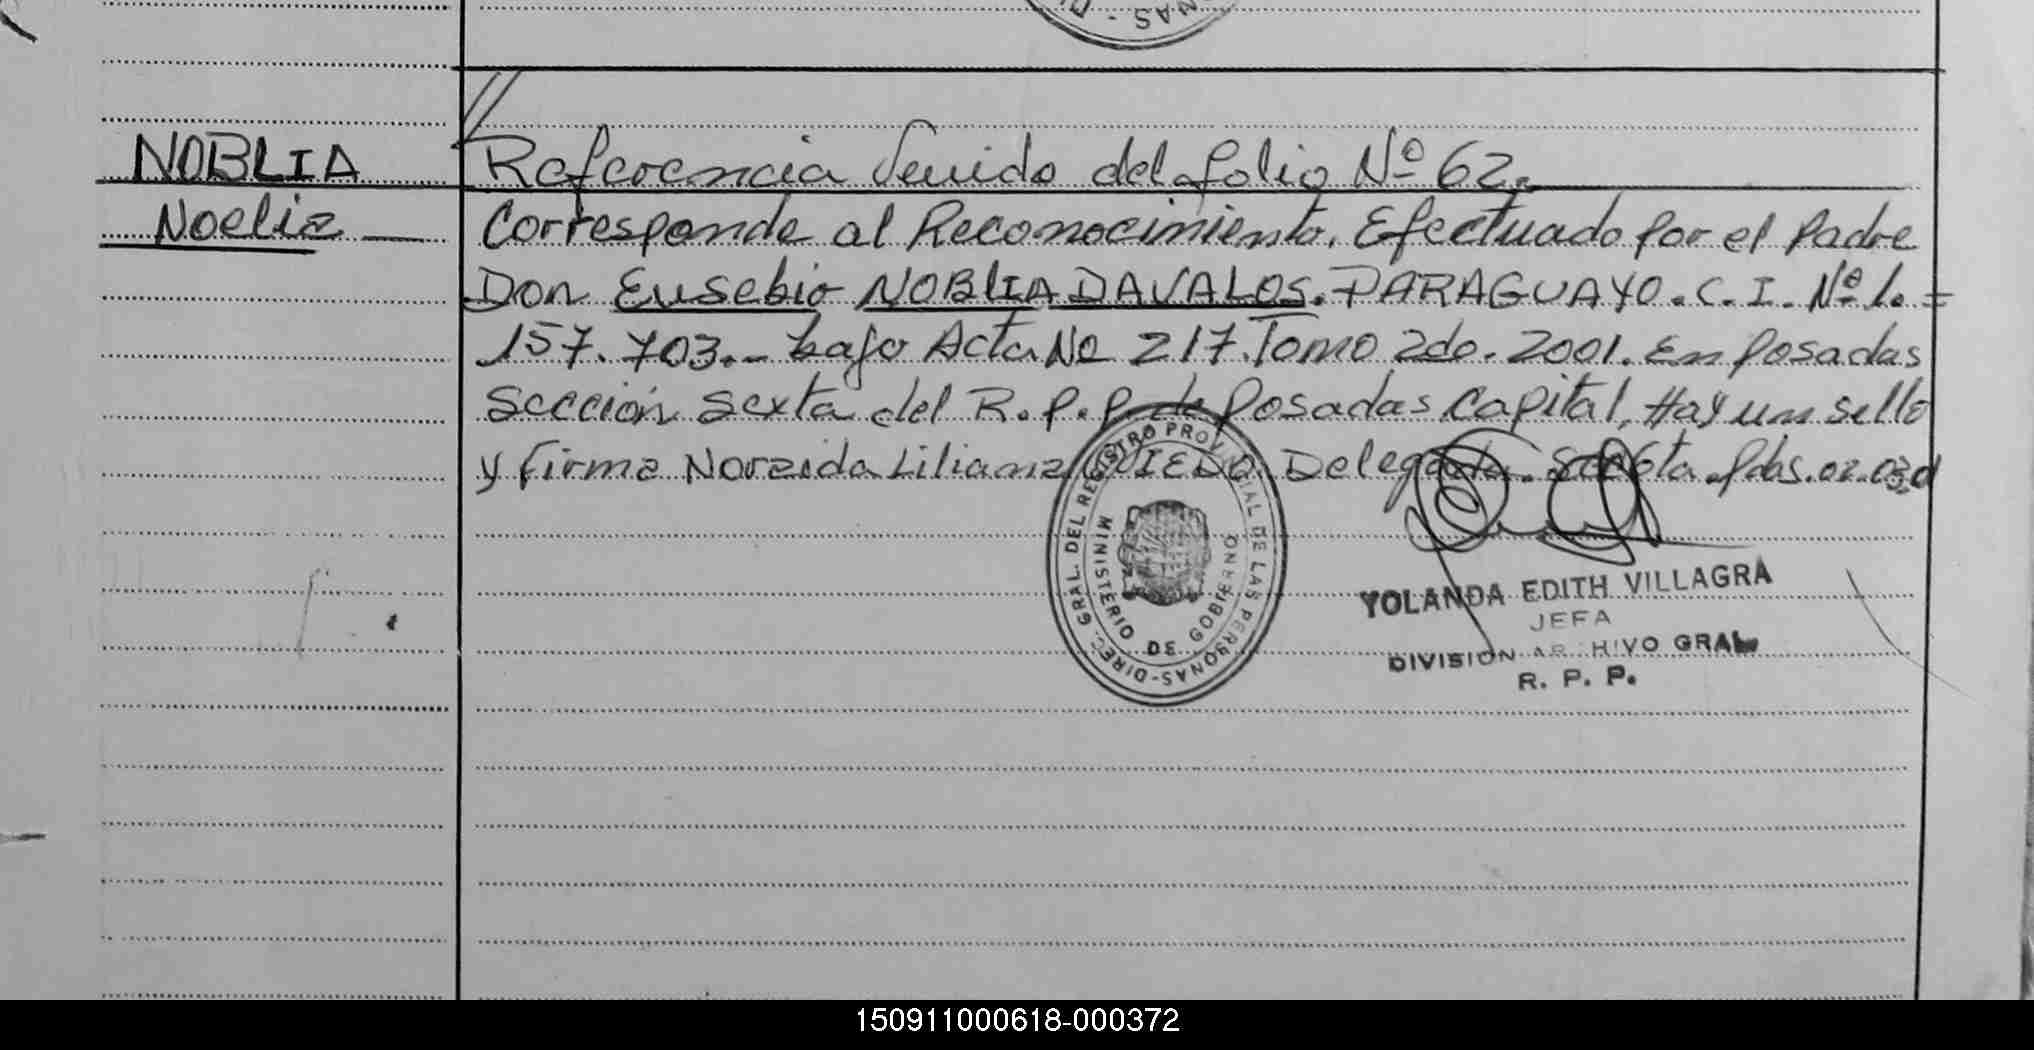 NAS - D
NOBLIA
Noelia
// Referencia Venido del folio Nº 62.
Corresponde al Reconocimiento. Efectuado por el Padre
Don Eusebio NOBLIA DAVALOS. PARAGUAYO. C. I. Nº 1. =
157. 703. - bajo Acta No 217. Tomo 2do. 2001. En Posadas
Sección Sexta del R. P. P. de Posadas Capital, Hay un sello
y firma Noraida Liliana OVIEDO. Delegada. Secc 6ta. Pdas. 02.03.01
DIREC. GRAL. DEL REGISTRO PROVINCIAL DE LAS PERSONAS -
MINISTERIO DE GOBIERNO
YOLANDA EDITH VILLAGRA
JEFA
DIVISION ARCHIVO GRAL
R. P. P.
150911000618-000372